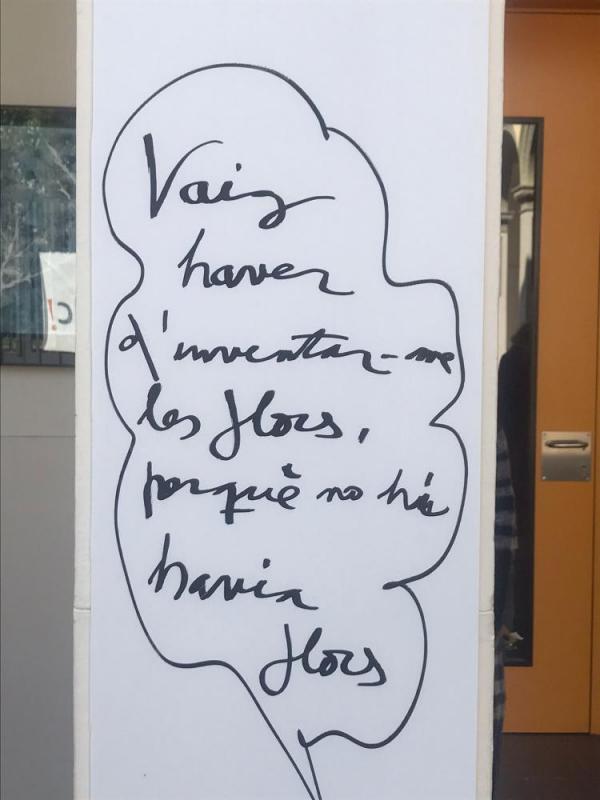 Vaig
haver
d'inventar-me
les flors,
perquè no hi
havia
flors